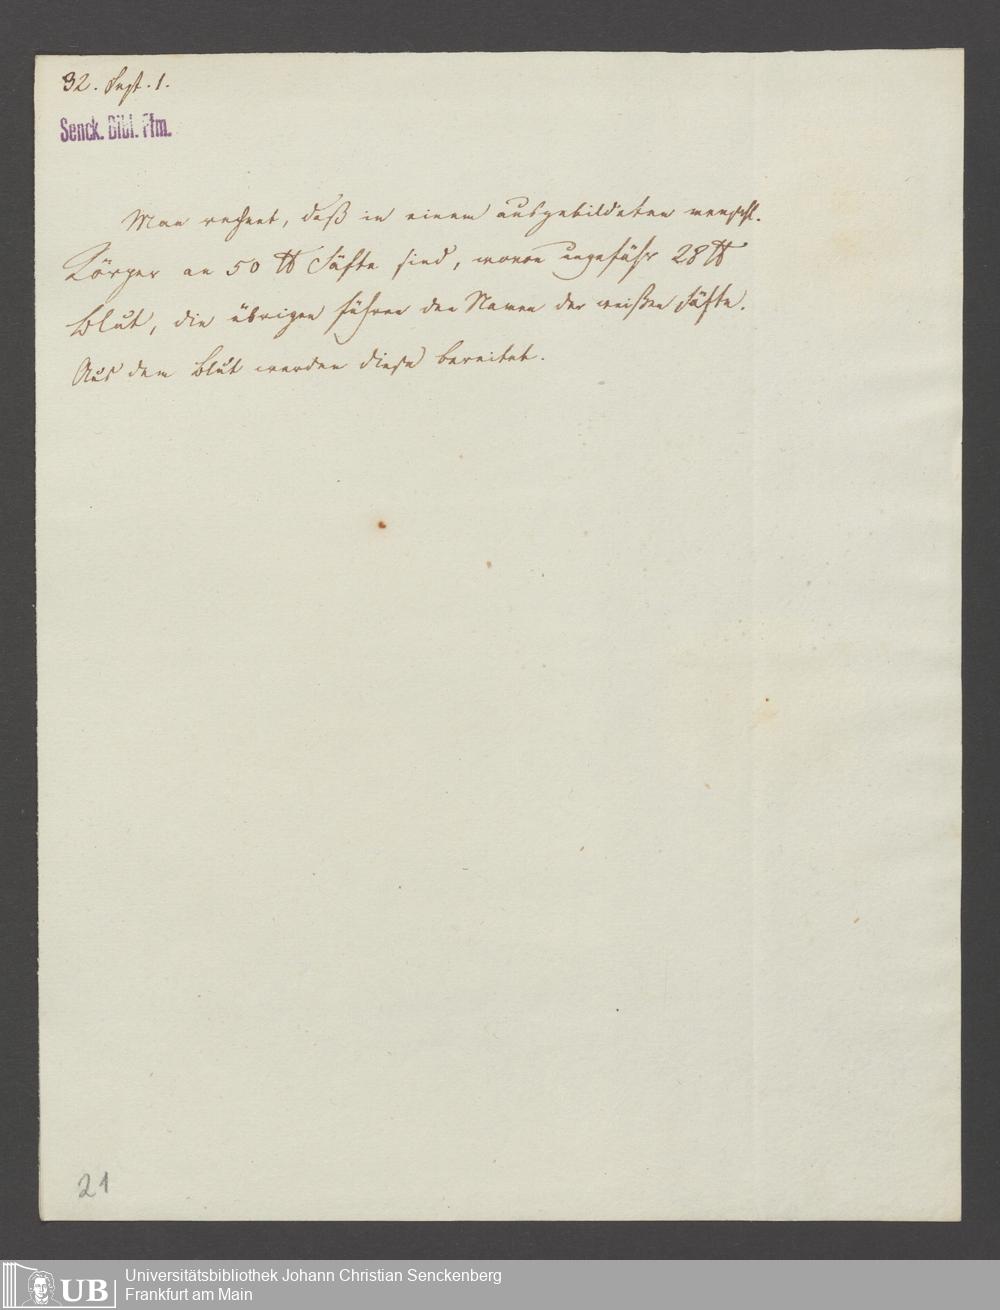 32. Sept. 1.
Senck. Bibl. Ffm.
Man rechnet, daß in einem ausgebildeten menschl.
Körper an 50 ℔ Säfte sind, wovon ungefähr 28 ℔
Blut, die übrigen führen den Namen der weißen Säfte.
Aus dem Blut werden diese bereitet.
21
UB
Universitätsbibliothek Johann Christian Senckenberg
Frankfurt am Main